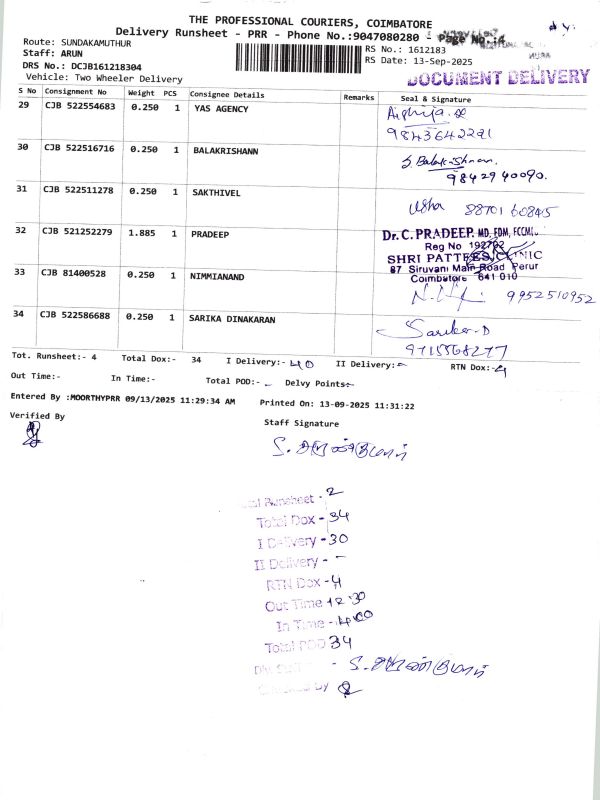 THE PROFESSIONAL COURIERS, COIMBATORE
Delivery Runsheet - PRR - Phone No.:9047080280 - Page No.:4
Route: SUNDAKAMUTHUR
RS No.: 1612183
Staff: ARUN
RS Date: 13-Sep-2025
DRS No.: DCJB161218304
Vehicle: Two Wheeler Delivery
DOCUMENT DELIVERY
S No Consignment No Weight PCS Consignee Details Remarks Seal & Signature
29 CJB 522554683 0.250 1 YAS AGENCY
9843642291
30 CJB 522516716 0.250 1 BALAKRISHANN S. Balakrishnan.
9842940090.
31 CJB 522511278 0.250 1 SAKTHIVEL Usha 8870160845
32 CJB 521252279 1.885 1 PRADEEP Dr. C. PRADEEP, MD, FDM, FCCM.
Reg No 192702
SHRI PATTEES CLINIC
87 Siruvani Main Road Perur
Coimbatore 641 010
33 CJB 81400528 0.250 1 NIMMIANAND
9952510952
34 CJB 522586688 0.250 1 SARIKA DINAKARAN Sarika.D
9715568277
Tot. Runsheet:- 4 Total Dox:- 34 I Delivery:- 40 II Delivery:- - RTN Dox:- 4
Out Time:- In Time:- Total POD:- - Delvy Points:-
Entered By :MOORTHYPRR 09/13/2025 11:29:34 AM Printed On: 13-09-2025 11:31:22
Verified By
Staff Signature
S. அருண்குமார்
Runsheet - 2
Total Dox - 34
I Delivery - 30
II Delivery - -
RTN Dox - 4
Out Time 12:30
In Time - 14:00
Total POD 34
S. அருண்குமார்
By